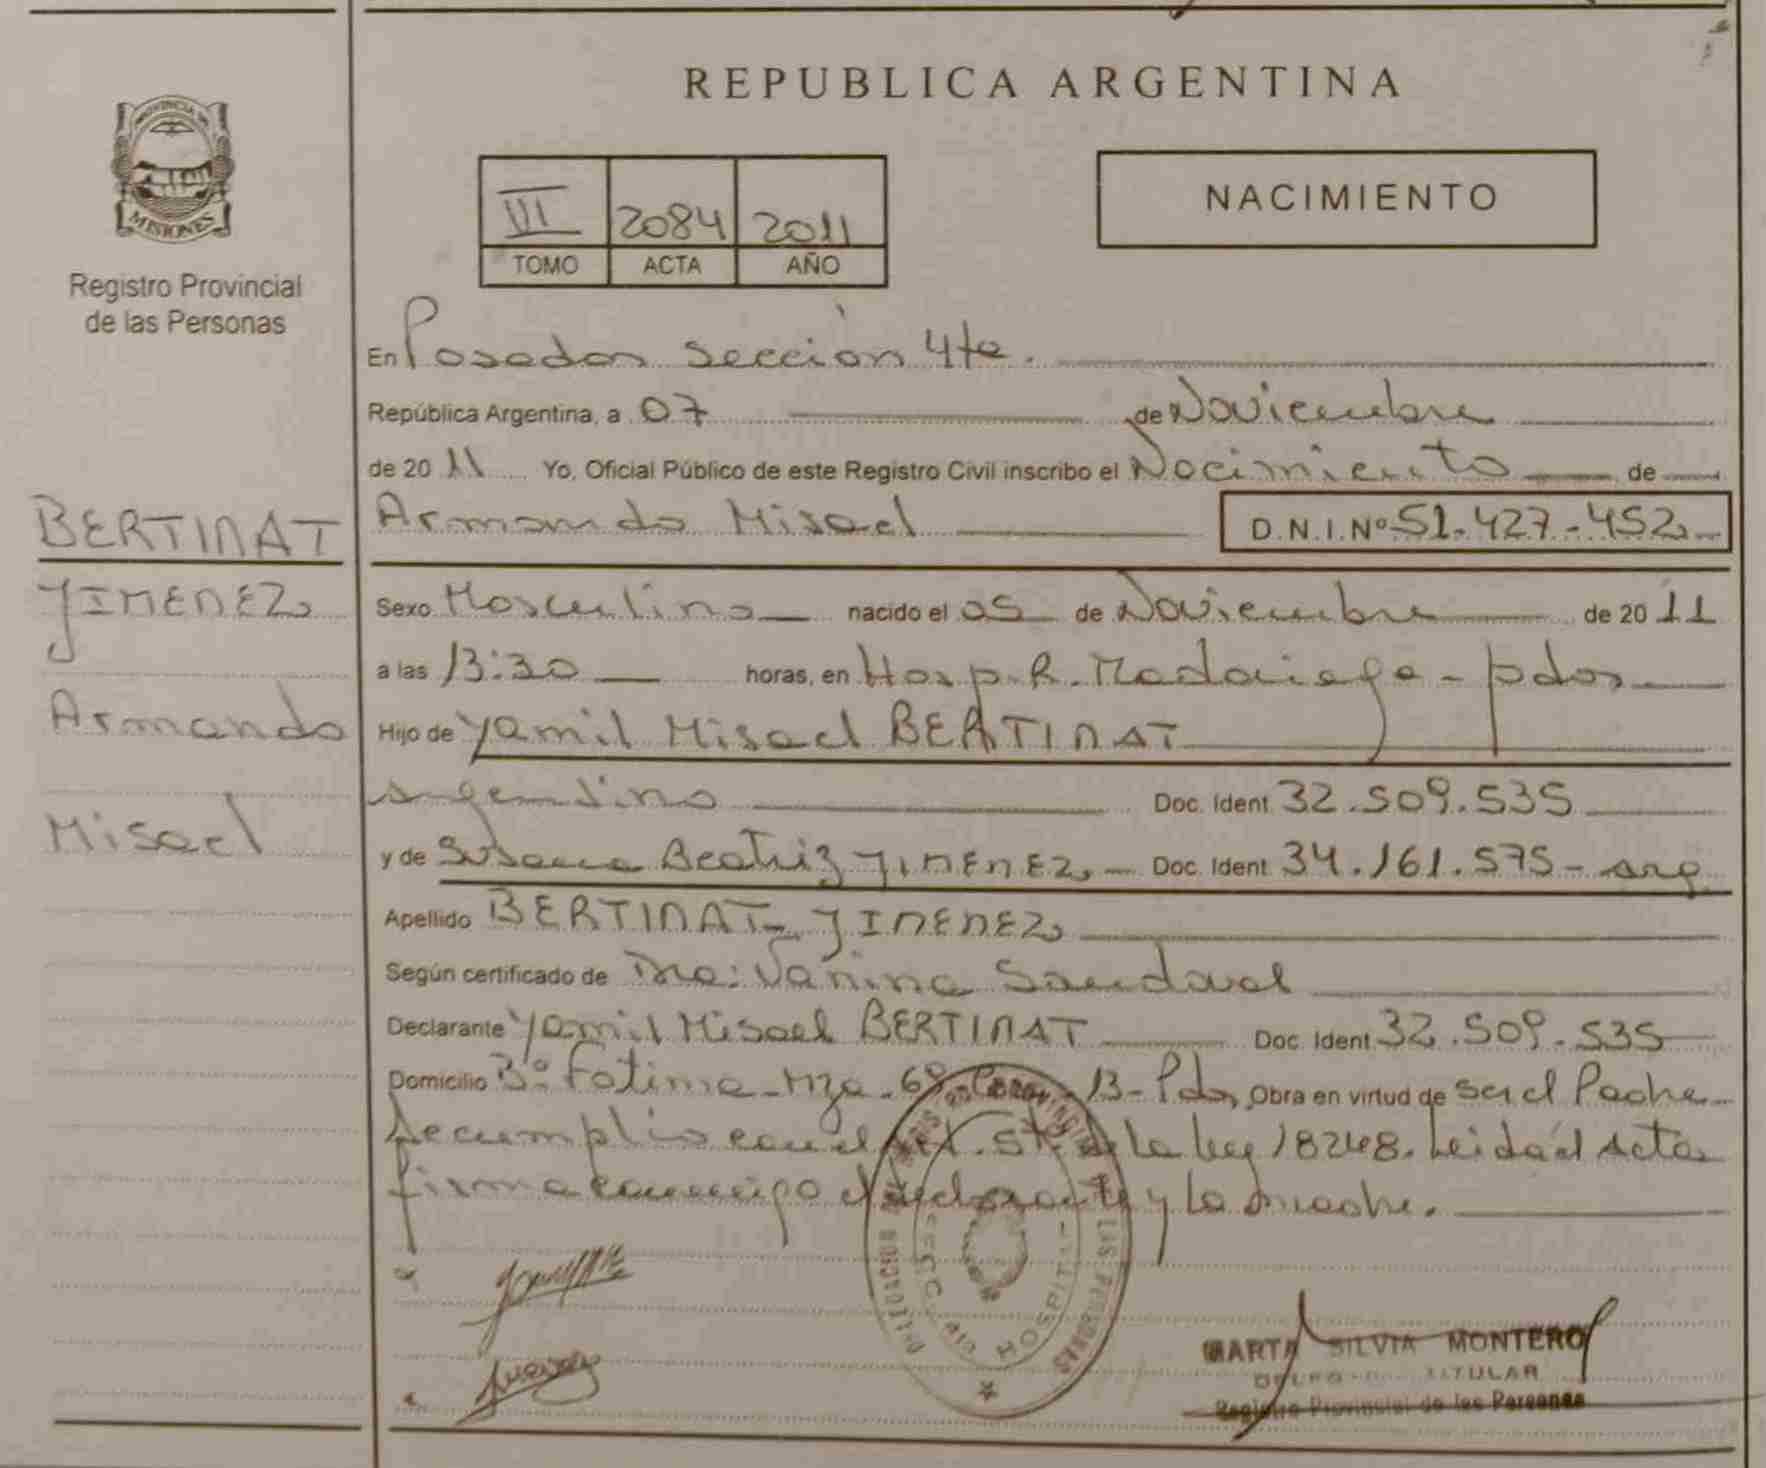 REPUBLICA ARGENTINA
PROVINCIA DE
MISIONES
Registro Provincial
de las Personas
VII 2084 2011
TOMO ACTA AÑO
NACIMIENTO
En Posadas Sección 4ta.
República Argentina, a 07 de Noviembre
de 2011 Yo, Oficial Público de este Registro Civil inscribo el Nacimiento de
Armando Misael D.N.I. Nº 51.427.452
BERTINAT
JIMENEZ
Armando
Misael
Sexo Masculino nacido el 05 de Noviembre de 2011
a las 13:30 horas, en Hosp. R. Madariaga - pdas
Hijo de Yamil Misael BERTINAT
argentino Doc. Ident. 32.509.535
y de Susana Beatriz JIMENEZ Doc. Ident. 34.161.575 - arg.
Apellido BERTINAT JIMENEZ
Según certificado de Dra: Vanina Sandoval
Declarante Yamil Misael BERTINAT Doc. Ident. 32.509.535
Domicilio Bº Fatima - Mza. 13 - Pdas, Obra en virtud de ser el Padre
Se cumplio con el Art. de la ley 18248. Leida el Acta
firma conmigo el declarante y la madre.
DELEGACION PROVINCIAL LAS PERSONAS
HOSPITAL
MARTA SILVIA MONTERO
TITULAR
Registro Provincial de las Personas